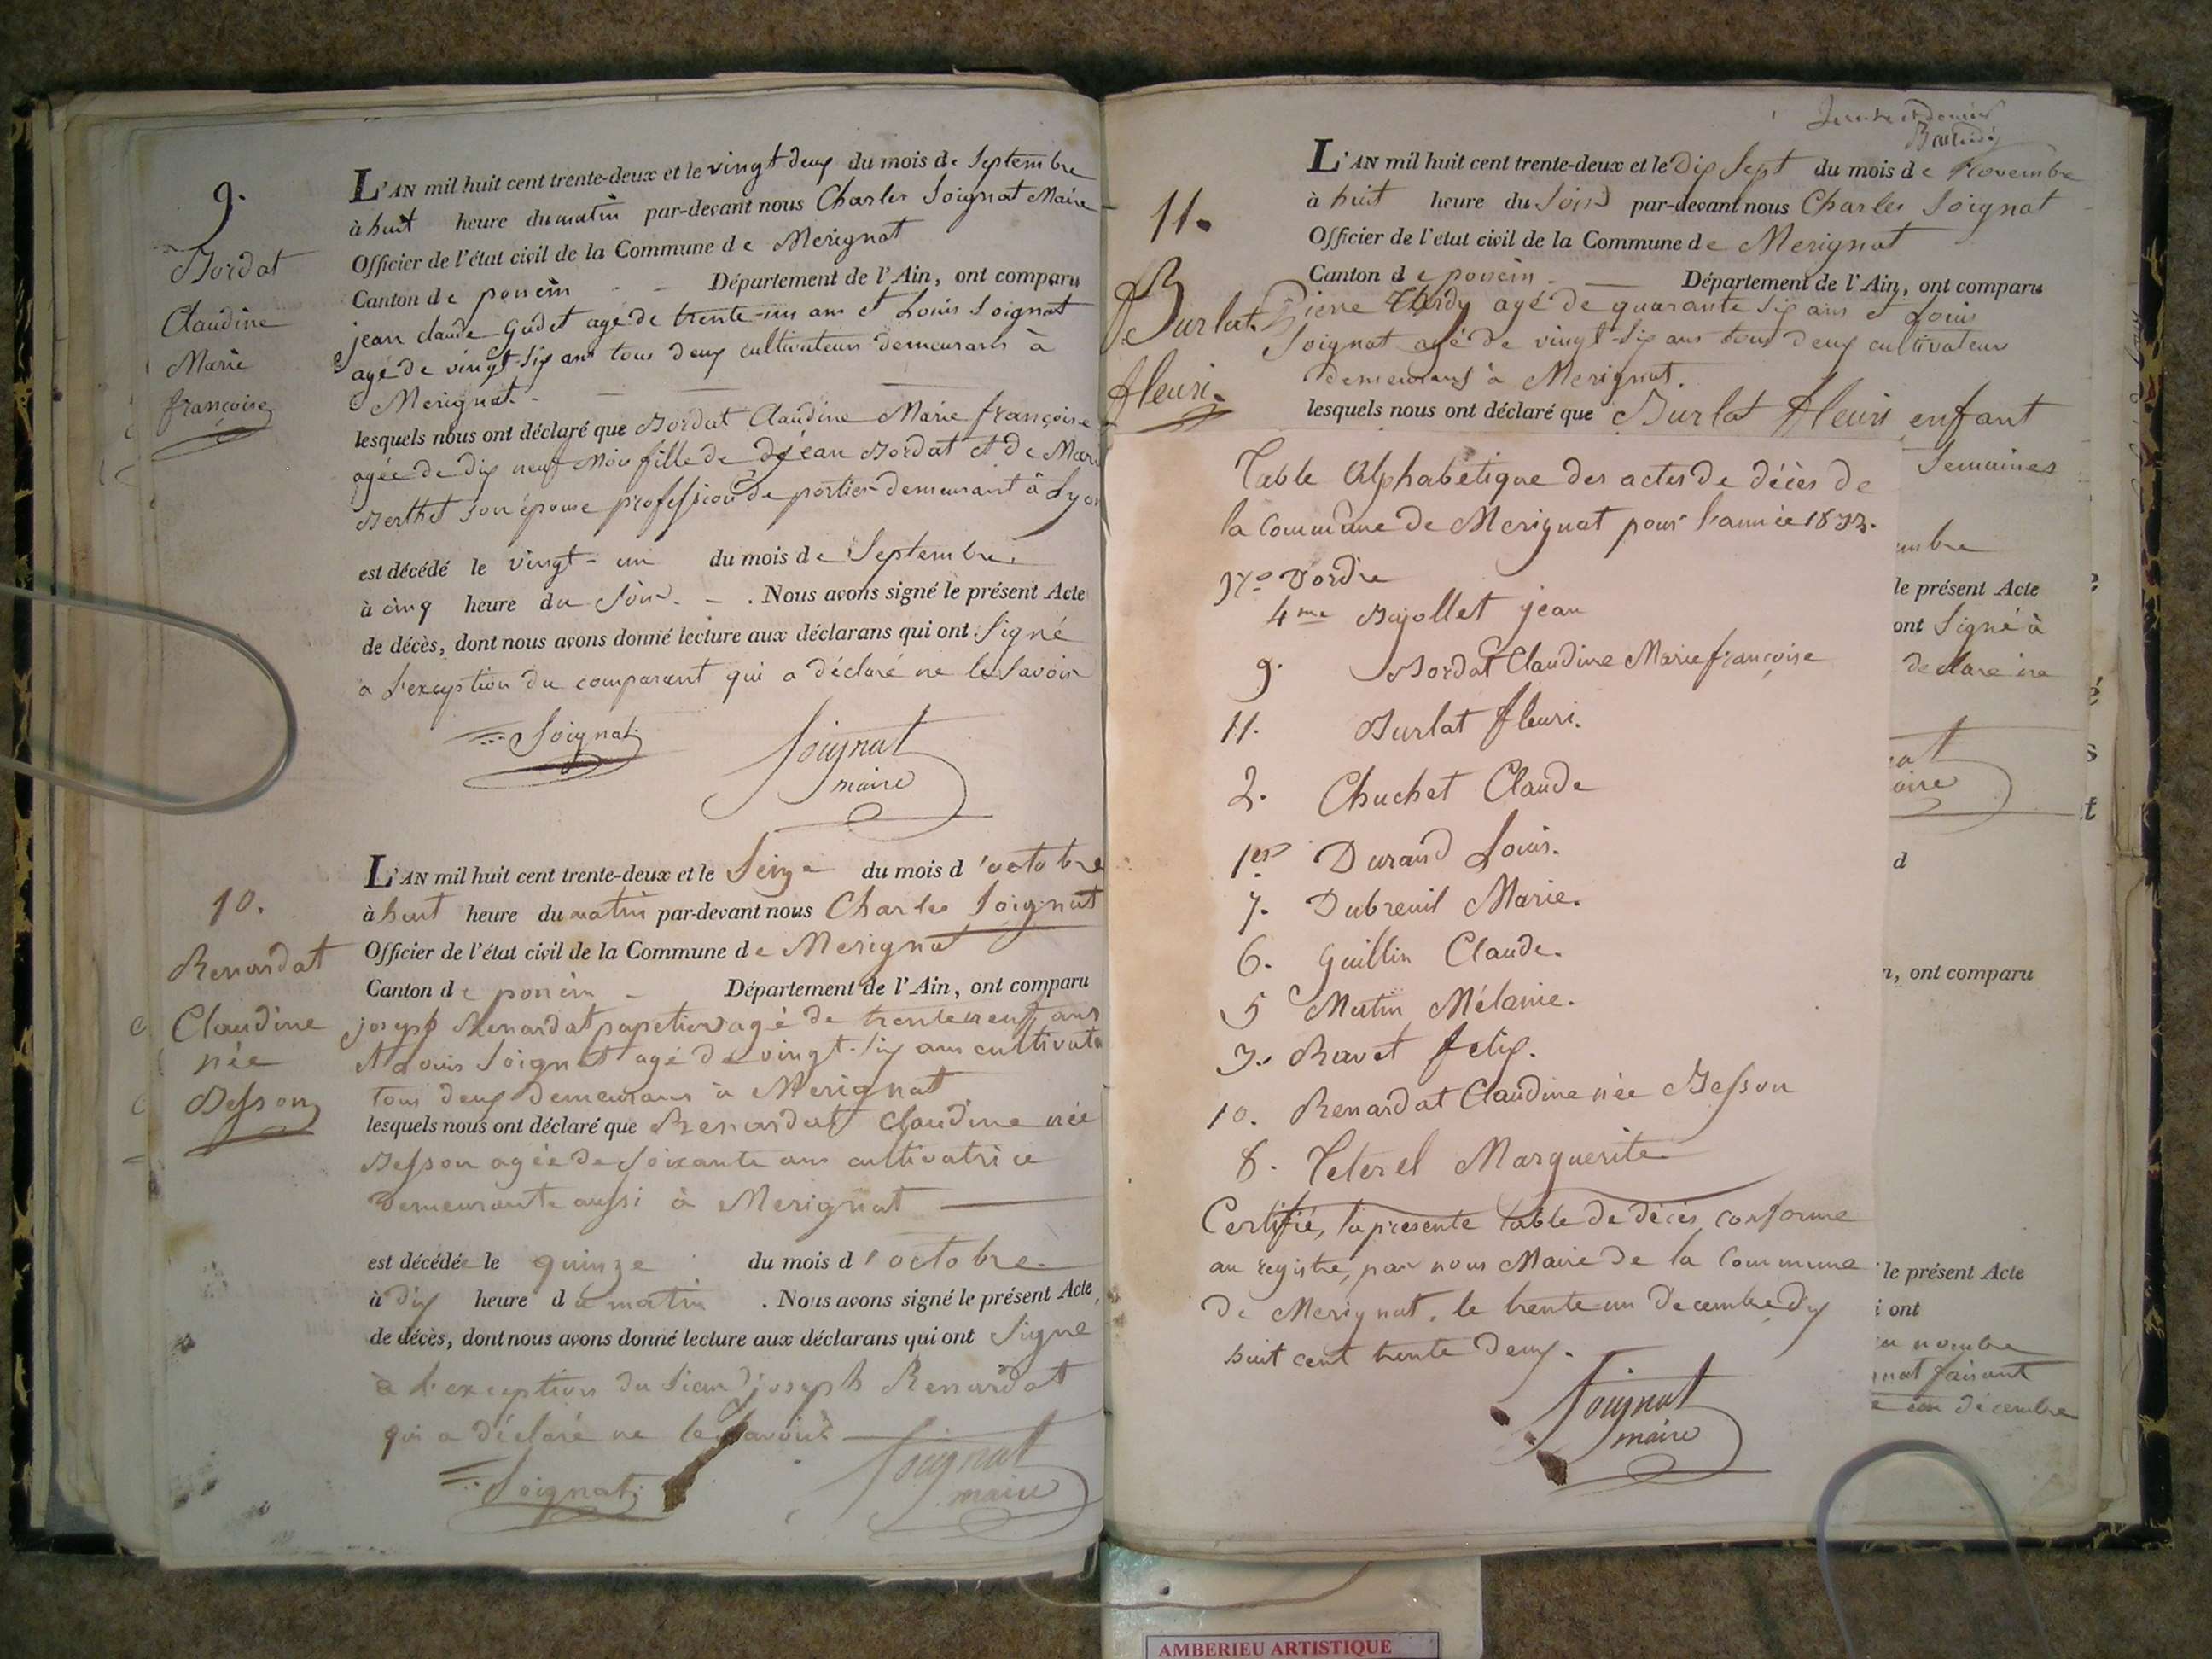 9.
Bordat
Claudine
Marie
françoise
L'AN mil huit cent trente-deux et le vingt deux du mois de Septembre
à huit heure du matin par-devant nous Charles Soignat Maire
Officier de l'état civil de la Commune de Merignat
Canton de poncin Département de l'Ain, ont comparu
jean claude Godet agé de trente-un ans et Louis Soignat
agé de vingt-six ans tous deux cultivateurs demeurants à
Merignat.
lesquels nous ont déclaré que Bordat Claudine Marie françoise
agée de dix neuf Mois fille de jean Bordat et de
Berthet son épouse profession de portier demeurant à Lyon
est décédé le vingt-un du mois de Septembre.
à cinq heure du Soir. Nous avons signé le présent Acte
de décès, dont nous avons donné lecture aux déclarans qui ont Signé
a l'exception du comparant qui a déclaré ne le Savoir
Soignat
Soignat
maire
10.
Renardat
Claudine
née
Besson
L'AN mil huit cent trente-deux et le Seize du mois d'octobre
à huit heure du matin par-devant nous Charles Soignat
Officier de l'état civil de la Commune de Merignat
Canton de poncin Département de l'Ain, ont comparu
joseph Renardat papetier agé de trente neuf ans
et Louis Soignat agé de vingt-six ans
tous deux demeurans à Merignat
lesquels nous ont déclaré que Renardat Claudine née
Besson agée de Soixante ans cultivatrice
Demeurante aussi à Merignat
est décédée le quinze du mois d'octobre.
à dix heure du matin. Nous avons signé le présent Acte,
de décès, dont nous avons donné lecture aux déclarans qui ont Signé
à l'exception du Sieur joseph Renardat
qui a déclaré ne le Savoir
Soignat
Soignat
maire
11.
Burlat
fleuri.
L'AN mil huit cent trente-deux et le Dix Sept du mois de Novembre
à huit heure du Soir par-devant nous Charles Soignat
Officier de l'état civil de la Commune de Merignat
Canton de poncin Département de l'Ain, ont comparu
Pierre agé de quarante Six ans et Louis
Soignat agé de vingt-Six ans tous deux cultivateurs
demeurans à Merignat.
lesquels nous ont déclaré que Burlat fleuri enfant
Semaines
le présent Acte
ont Signé à
déclaré ne
d
n, ont comparu
le présent Acte
i ont
nombre
faisant
décembre
Table Alphabétique des actes de décès de
la Commune de Merignat pour l'année 1832.
N.o D'ordre
4me Bajollet jean
9. Bordat Claudine Marie françoise
11. Burlat fleuri.
2. Chuchet Claude
1er Durand Louis.
7. Dubreuil Marie.
6. Guillin Claude.
5 Mutin Mélanie.
3. Ravet felix.
10. Renardat Claudine née Besson
8. Teterel Marguerite
Certifié, la présente table de décès, conforme
au registre, par nous Maire de la Commune
de Merignat, le trente un Decembre dix
huit cent trente deux.
Soignat
maire
AMBERIEU ARTISTIQUE